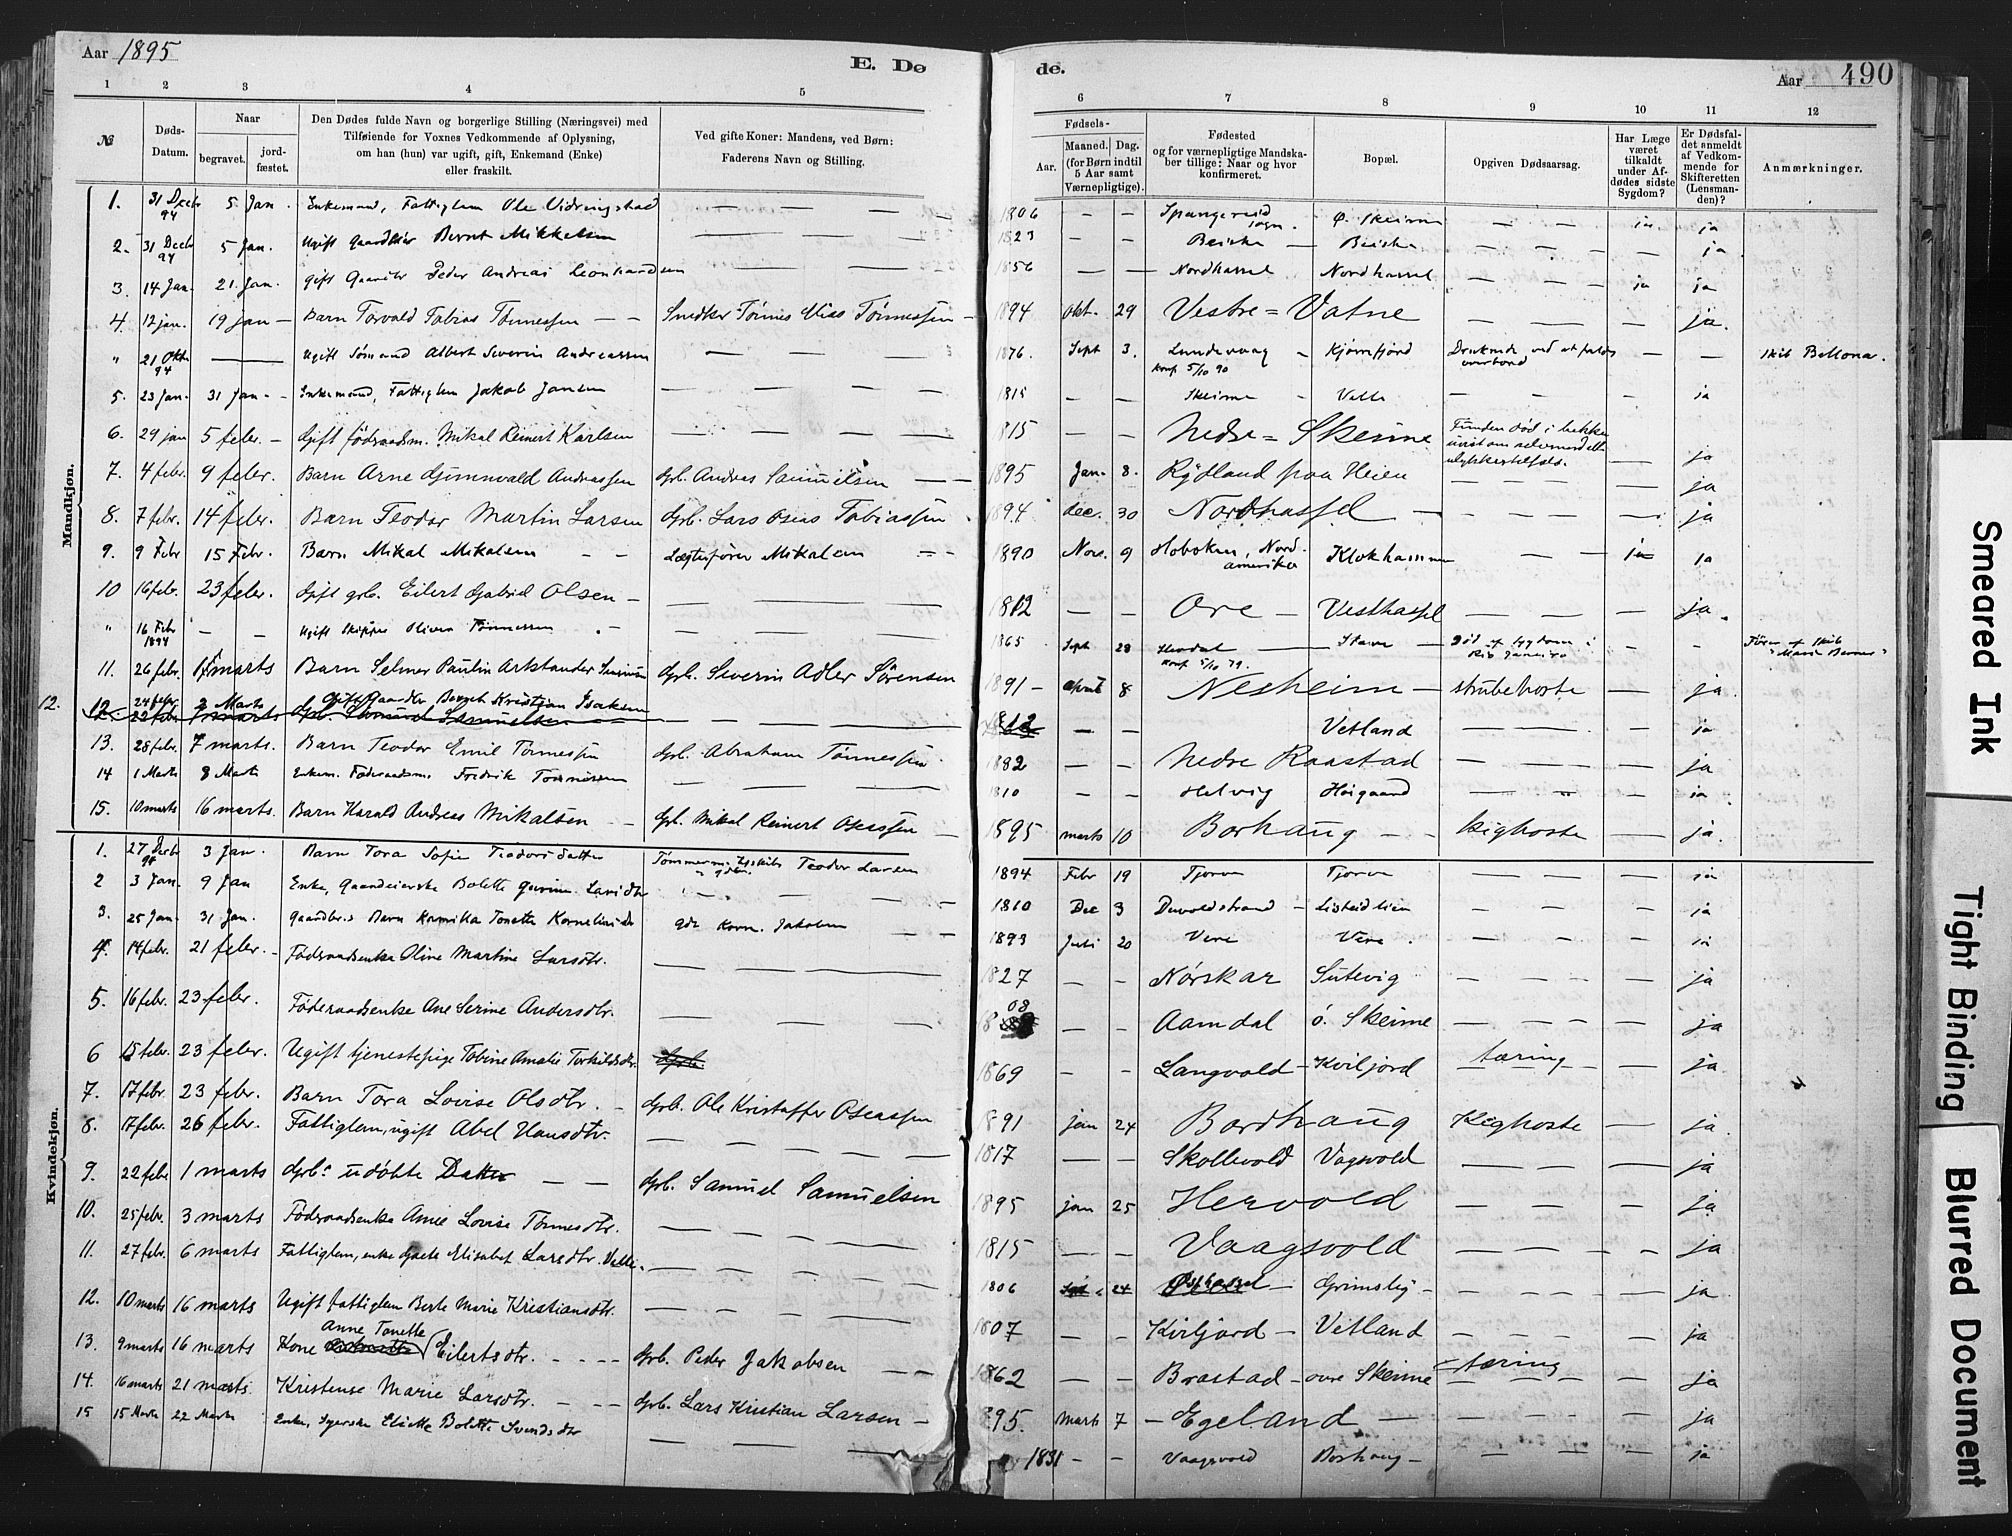 Aar 1895
E. Dø
de.
Aar 490
1 2 3 4 5
6 7 8 9 10 11 12
№
Døds-Datum.
Naar
begravet. jord-fæstet.
Den Dødes fulde Navn og borgerlige Stilling (Næringsvei) med
Tilføiende for Voxnes Vedkommende af Oplysning,
om han (hun) var ugift, gift, Enkemand (Enke)
eller fraskilt.
Ved gifte Koner: Mandens, ved Børn:
Faderens Navn og Stilling.
Fødsels-
Aar. Maaned. Dag.
(for Børn indtil
5 Aar samt
Værnepligtige).
Fødested
og for værnepligtige Mandska-
ber tillige: Naar og hvor
konfirmeret.
Bopæl.
Opgiven Dødsaarsag.
Har Læge
været
tilkaldt
under Af-
dødes sidste
Sygdom?
Er Dødsfal-
det anmeldt
af Vedkom-
mende for
Skifteretten
(Lensman-
den)?
Anmærkninger.
Mandkjøn.
1. 31 Decbr 94 5 Jan. Enkemand, Fattiglem Ole Vidringstad — — 1806 — — Spangereid sogn. Ø. Skeime — — ja ja
2. 31 Decbr 94 5 Jan. Ugift Gaardbr Bernt Mikkelsen — — 1823 — — Beiska — Beiska — — — ja
3. 14 Jan. 21. Jan. Gift Gaardbr Peder Andreas Leonhardsen — — 1856 — — Nordhassel Nordhassel — — ja ja
4. 12 jan. 19 jan — Barn Torvald Tobias Tønnessen — — Snedker Tønnes Elias Tønnessen — 1894 Okt. 29 Vestre = Vatne — — — ja.
" 21 Oktr 94 — Ugift Sømand Albert Severin Andreassen — — 1876. Sept 3. Lundevaag — Kjørrefjord Druknede ved at falde overbord — — Skib Bellona.
konf 5/10 90
5. 23 Jan. 31 Jan. - Enkemand, Fattiglem Jakob Jansen — — 1815 — — Skeime — Velle — — — ja
6. 29 jan 5 febr. — Gift føderaadsm. Mikal Reinert Karlsen — — 1815 — — Nedre = Skeime Funden død i bekken uvist om selvmord ell. ulykkestilfælde. — ja
7. 4 febr. 9 febr. Barn Arne Gunnvald Andreassen Gbr. Andreas Samuelsen — — 1895 Jan. 8. Rydland paa Heien — — — ja
8. 7 febr. 14 febr. Barn Teodor Martin Larsen Gbr. Lars Oseas Tobiassen 1894 dec. 30 Nordhassel — — — ja
9. 9 Febr 15 Febr. Barn Mikal Mikalsen — — Lægtefører Mikalsen — — 1890 Nov. 9 Hoboken, Nord-amerika Klokhammer — — ja ja
10 16 febr. 23 febr. Gift gbr. Eilert Gabriel Olsen — — — 1812 — — Ore — Vesthassel — — — ja.
" 16 Febr 1894 — — Ugift Skipper Oliver Tønnessen — 1865 Sept 28 — Stave — Død af Sygdom i Rio Janeiro — — Fører af Skib "Marie Berner"
konf 5/10 79.
11. 26 febr. 1 marts Barn Selmer Paulin Gbr. Severin Adler Sörensen 1891 — April 8 Nesheim — strubehoste — ja
12. 12 24 febr. 2 Marts Gift Gaardbr Berget Kristian Isaksen
22 febr 1 marts Gbr. Samuel Samuelsen — — — 1812 — — Vetland — — — ja
13. 28 febr. 7 marts. Barn Teodor Emil Tönnessen Gbr. Abraham Tönnessen 1882 — — Nedre Raastad — — — ja
14 1 Marts 8 Marts Enkem. Føderaadsm. Fredrik Tønnessen — — 1810 — — Helvig Høigaard — — — ja
15. 10 marts 16 marts. Barn Harald Andreas Mikalsen — Gbr. Mikal Reinert Oseassen — 1895 marts 10 Borhaug — — kighoste — ja.
Kvindekjøn.
1. 27 Decbr 94 3 Jan. Barn Tora Sofie Teodorsdatter Tømmerm. Teodor Larsen 1894 Febr 19 Tjorve Tjorve — — — ja
2 3 Jan. 9 Jan Enke, Gaardeierske Bolette Gurine Larsdtr — — 1810 Dec 3 Duvoldstrand — Listeidlien — — — ja
3. 25 Jan. 31 Jan. Gaardbr.s Barn Kornelia Tonette Korneliusdtr gbr Korn. Jakobsen — — 1893 Juli 20 Vere Vere — — — ja
4. 14 febr. 21 febr. — Føderaadsenke Oline Martine Larsdtr. — — — 1827 — — Nörskar Sutevig — — — ja
5. 16 febr. 23 febr. Føderaadsenke Ane Serine Andersdtr. — — — 1808 — — Aamdal ö. Skeime — — — ja
6 15 febr. 23 febr. Ugift tjenestepige Tobine Amalie Torkildsdtr. Gbr. 1869 — — Langvold — Kviljord tæring — ja
7. 17 febr. 23 febr. Barn Tora Lovise Olsdtr. — Gbr. Ole Kristoffer Oseassen 1891 jan 24 Bordhaug Kighoste — ja
8. 17 febr. 26 febr. Fattiglem, ugift Abel Hansdtr. — — 1817 — — Skollevold Vagsvold — — — ja
9. 22 febr 1 marts Gbr.s udöbte Datter — — Gbr. Samuel Samuelsen 1895 jan 25 Hervold — — — ja
10. 25 febr. 3 marts Føderaadsenke Anne Lovise Tönnesdtr. — — — 1815 — — Vaagsvold — — — ja
11. 27 febr. 6 marts Fattiglem, enke Gjate Elisabet Larsdtr. Velle. — — — 1806 Sept 24 Østhassel — Grimsby — — — — ja
12. 10 marts 16 marts Ugift fattiglem Berte Marie Kristiansdtr. — — — 1807 — — Kviljord — Vetland — — — ja
13. 9 marts 16 marts Kone Anne Tonette Eilertsdtr. — — — Gbr. Peder Jakobsen — — 1862 — — Brastad — övre Skeime tæring — ja
14. 16 marts 21 marts. Kristense Marie Larsdtr. — — — Gbr. Lars Kristian Larsen — 1895. Marts 7 — Egeland — — — — ja
15 15 Marts 22 Marts Enke, Syerske Eliette Bolette Svendsdtr — — — 1831 — — Vaagsvold Borhaug — — — — ja
Smeared Ink
Tight Binding
Blurred Document